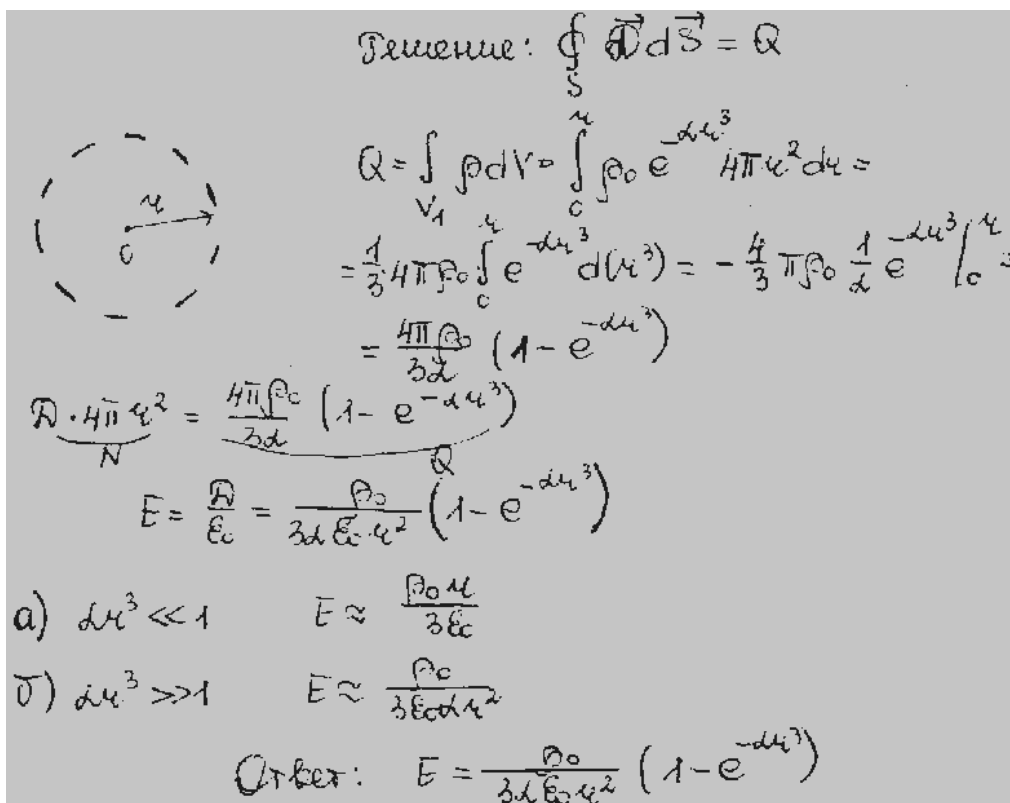 Решение: ∮_S D⃗ dS⃗ = Q
Q = ∫_{V₁} ρdV = ∫₀^r ρ₀ e^{-αr³} 4πr² dr =
= 1/3 4πρ₀ ∫₀^r e^{-αr³} d(r³) = - 4/3 πρ₀ 1/α e^{-αr³} |₀^r =
= 4πρ₀/3α (1 - e^{-αr³})
r
0
D · 4πr² = 4πρ₀/3α (1 - e^{-αr³})
N Q
E = D/ε₀ = ρ₀/(3αε₀·r²) (1 - e^{-αr³})
а) αr³ << 1 E ≈ ρ₀r/3ε₀
б) αr³ >> 1 E ≈ ρ₀/(3ε₀αr²)
Ответ: E = ρ₀/(3αε₀r²) (1 - e^{-αr³})